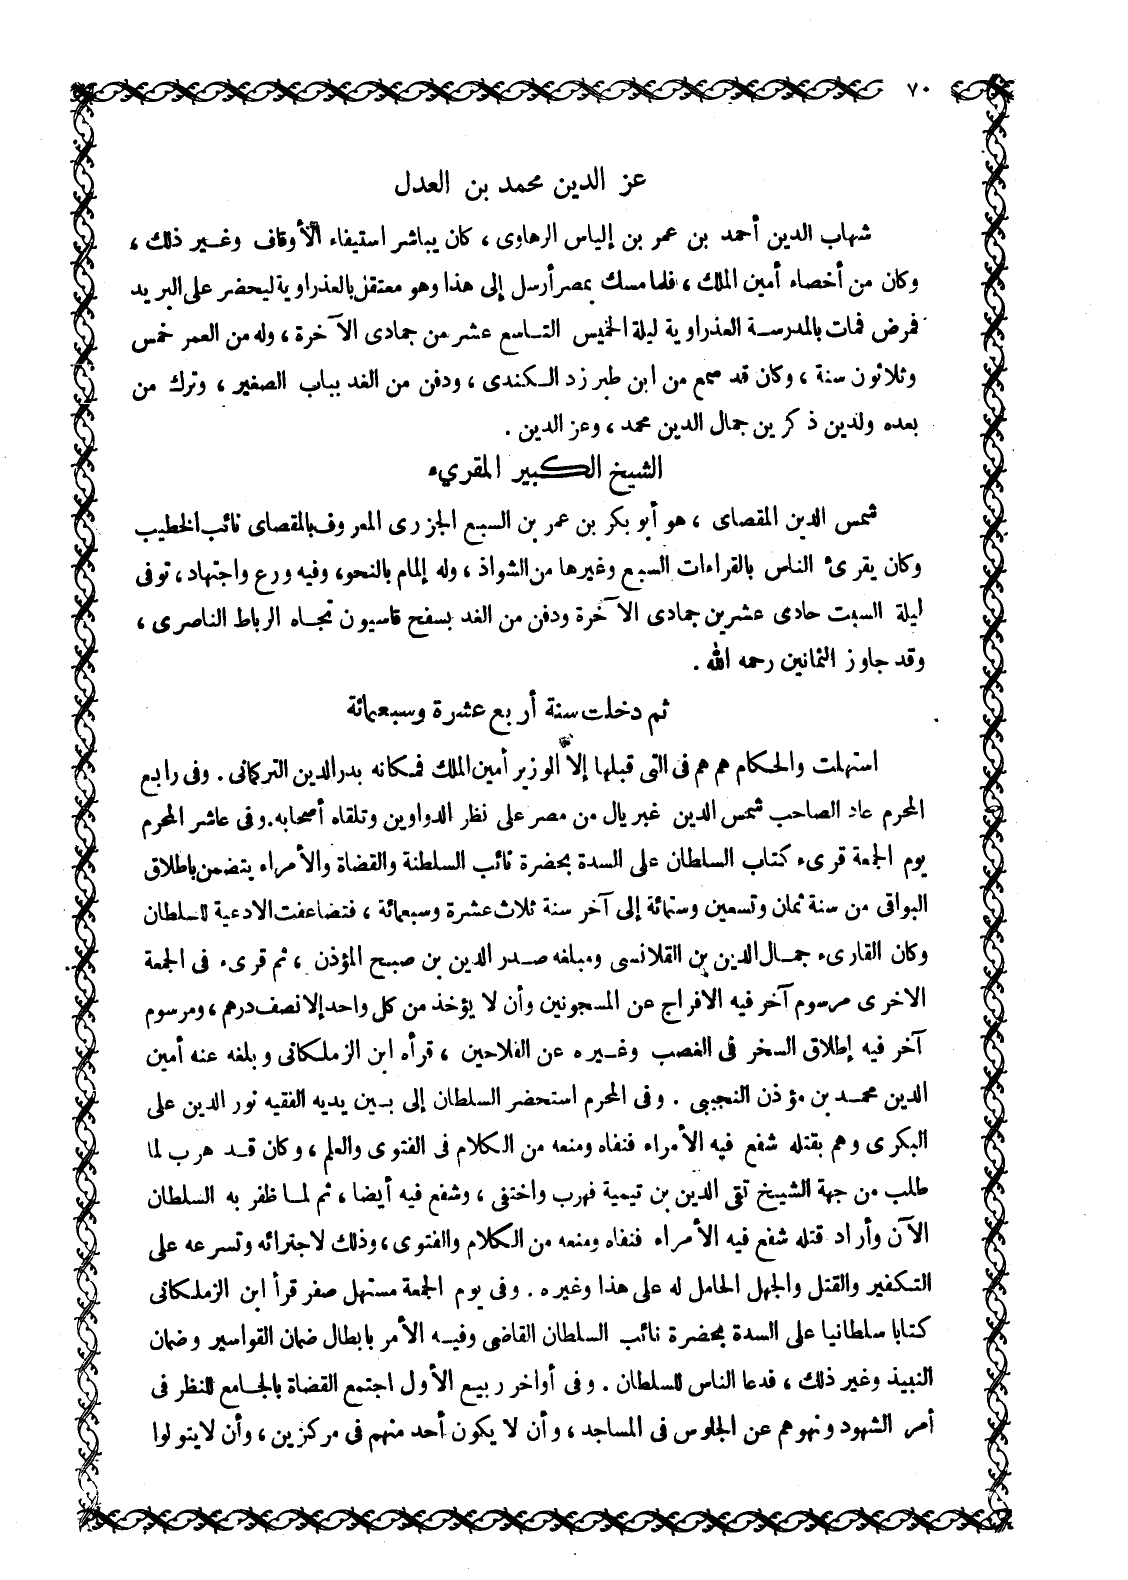 ٧٠
عز الدين محمد بن العدل
شهاب الدين أحمد بن عمر بن إلياس الرهاوى ، كان يباشر استيفاء الأوقاف وغير ذلك ،
وكان من أخصاء أمين الملك ، فلما مسك بمصر أرسل إلى هذا وهو معتقل بالعذراوية ليحضر على البريد
فمرض فمات بالمدرسة العذراوية ليلة الخميس التاسع عشر من جمادى الآخرة ، وله من العمر خمس
وثلاثون سنة ، وكان قد سمع من ابن طبرزد الكندى ، ودفن من الغد بباب الصغير ، وترك من
بعده ولدين ذكرين جمال الدين محمد ، وعز الدين .
الشيخ الكبير المقرىء
شمس الدين المقصاى ، هو أبو بكر بن عمر بن السبع الجزرى المعروف بالمقصاى نائب الخطيب
وكان يقرئ الناس بالقراءات السبع وغيرها من الشواذ ، وله إلمام بالنحو، وفيه ورع واجتهاد ، توفى
ليلة السبت حادى عشرين جمادى الآخرة ودفن من الغد بسفح قاسيون تجاه الرباط الناصرى ،
وقد جاوز الثمانين رحمه الله .
ثم دخلت سنة أربع عشرة وسبعمائة
استهلت والحكام هم هم فى التى قبلها إلا الوزير أمين الملك فمكانه بدر الدين التركمانى . وفى رابع
المحرم عاد الصاحب شمس الدين غبريال من مصر على نظر الدواوين وتلقاه أصحابه . وفى عاشر المحرم
يوم الجمعة قرىء كتاب السلطان على السدة بحضرة نائب السلطنة والقضاة والأمراء يتضمن باطلاق
البواقى من سنة ثمان وتسعين وستمائة إلى آخر سنة ثلاث عشرة وسبعمائة ، فتضاعفت الادعية للسلطان
وكان القارىء جمال الدين بن القلانسى ومبلغه صدر الدين بن صبح المؤذن ، ثم قرىء فى الجمعة
الاخرى مرسوم آخر فيه الافراج عن المسجونين وأن لا يؤخذ من كل واحد إلا نصف درهم ، ومرسوم
آخر فيه إطلاق السخر فى الغصب وغيره عن الفلاحين ، قرأه ابن الزملكانى وبلغه عنه أمين
الدين محمد بن مؤذن النجيبى . وفى المحرم استحضر السلطان إلى بين يديه الفقيه نور الدين على
البكرى وهم بقتله شفع فيه الأمراء فنفاه ومنعه من الكلام فى الفتوى والعلم ، وكان قد هرب لما
طلب من جهة الشيخ تقى الدين بن تيمية فهرب واختفى ، وشفع فيه أيضا ، ثم لما ظفر به السلطان
الآن وأراد قتله شفع فيه الأمراء فنفاه ومنعه من الكلام والفتوى ، وذلك لاجترائه وتسرعه على
التكفير والقتل والجهل الحامل له على هذا وغيره . وفى يوم الجمعة مستهل صفر قرأ ابن الزملكانى
كتابا سلطانيا على السدة بحضرة نائب السلطان القاضى وفيه الأمر بابطال ضمان القواسير وضمان
النبيذ وغير ذلك ، فدعا الناس للسلطان . وفى أواخر ربيع الأول اجتمع القضاة بالجامع للنظر فى
أمر الشهود ونهوهم عن الجلوس فى المساجد ، وأن لا يكون أحد منهم فى مركزين ، وأن لا يتولوا